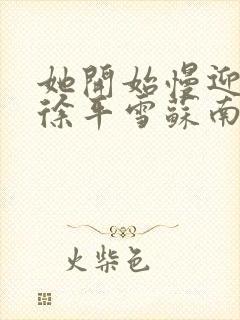 她開始慢迎
徐平雪蘇南
火柴色